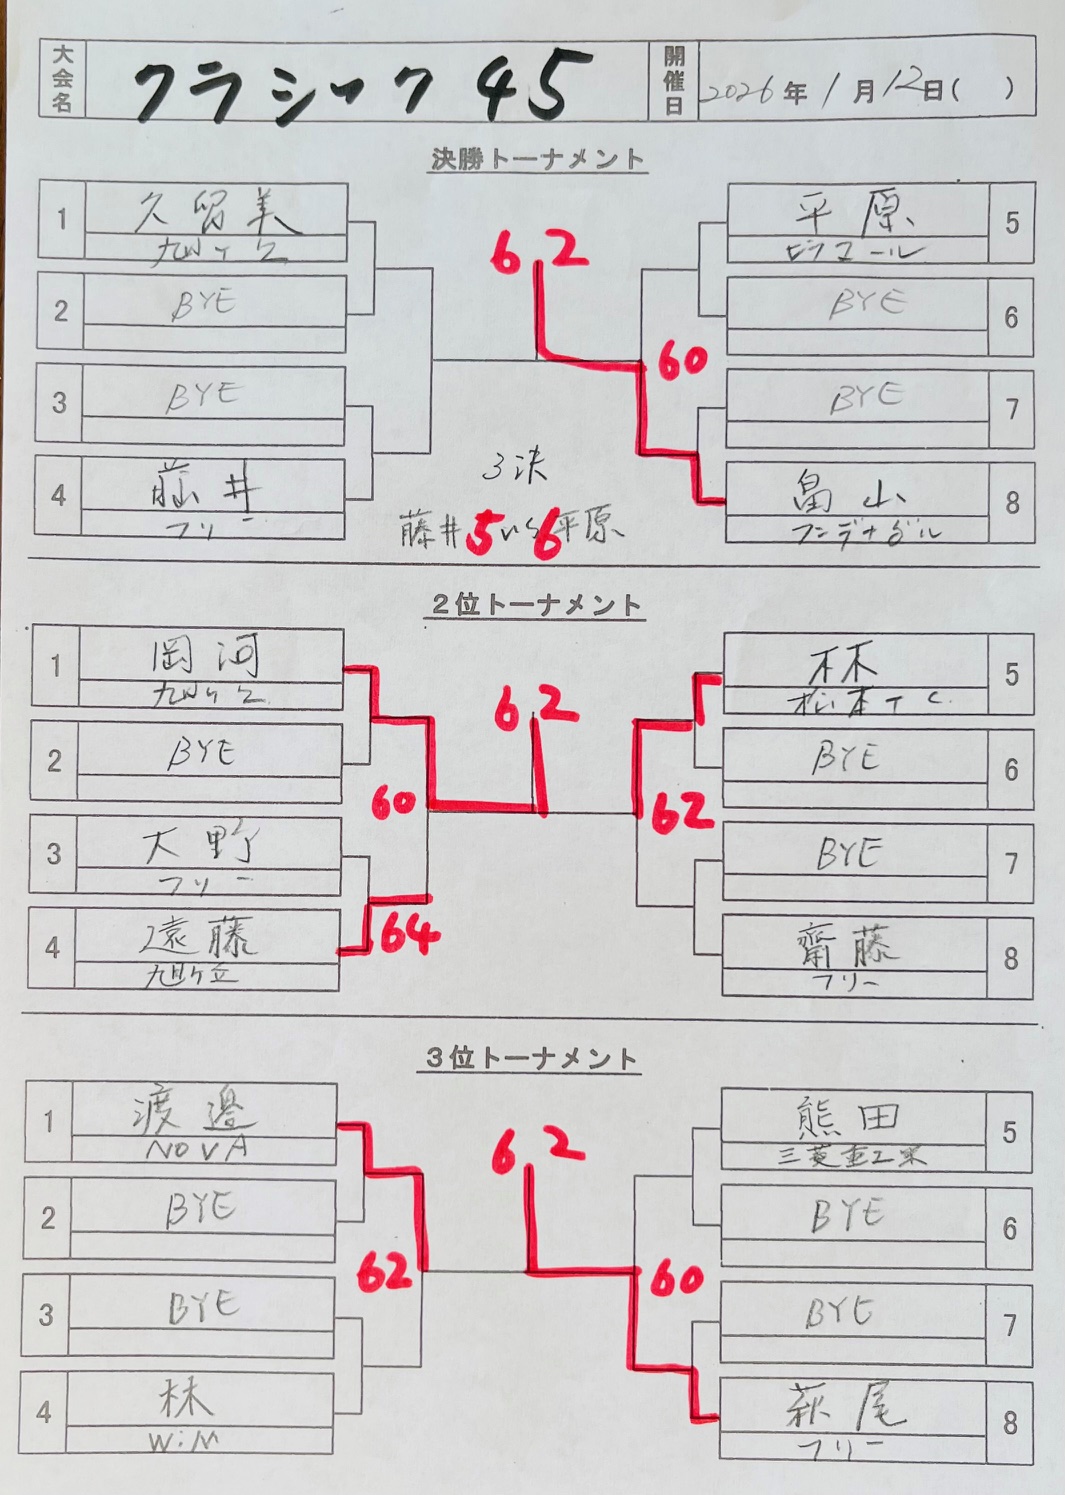 大会名 クラシック45 開催日 2026年1月12日( )
決勝トーナメント
1 久留美 平原 5
九州ケ丘 ピラコール
6 2
2 BYE BYE 6
60
3 BYE BYE 7
3決
4 藤井 畠山 8
フリー フンデナゲル
藤井 5 vs 6 平原
2位トーナメント
1 岡河 林 5
松本TC
6 2
2 BYE BYE 6
60 62
3 大野 BYE 7
フリー
4 遠藤 齋藤 8
64
旭ケ丘 フリー
3位トーナメント
1 渡邉 熊田 5
NOVA 三菱重工業
6 2
2 BYE BYE 6
62 60
3 BYE BYE 7
4 林 萩尾 8
WiM フリー